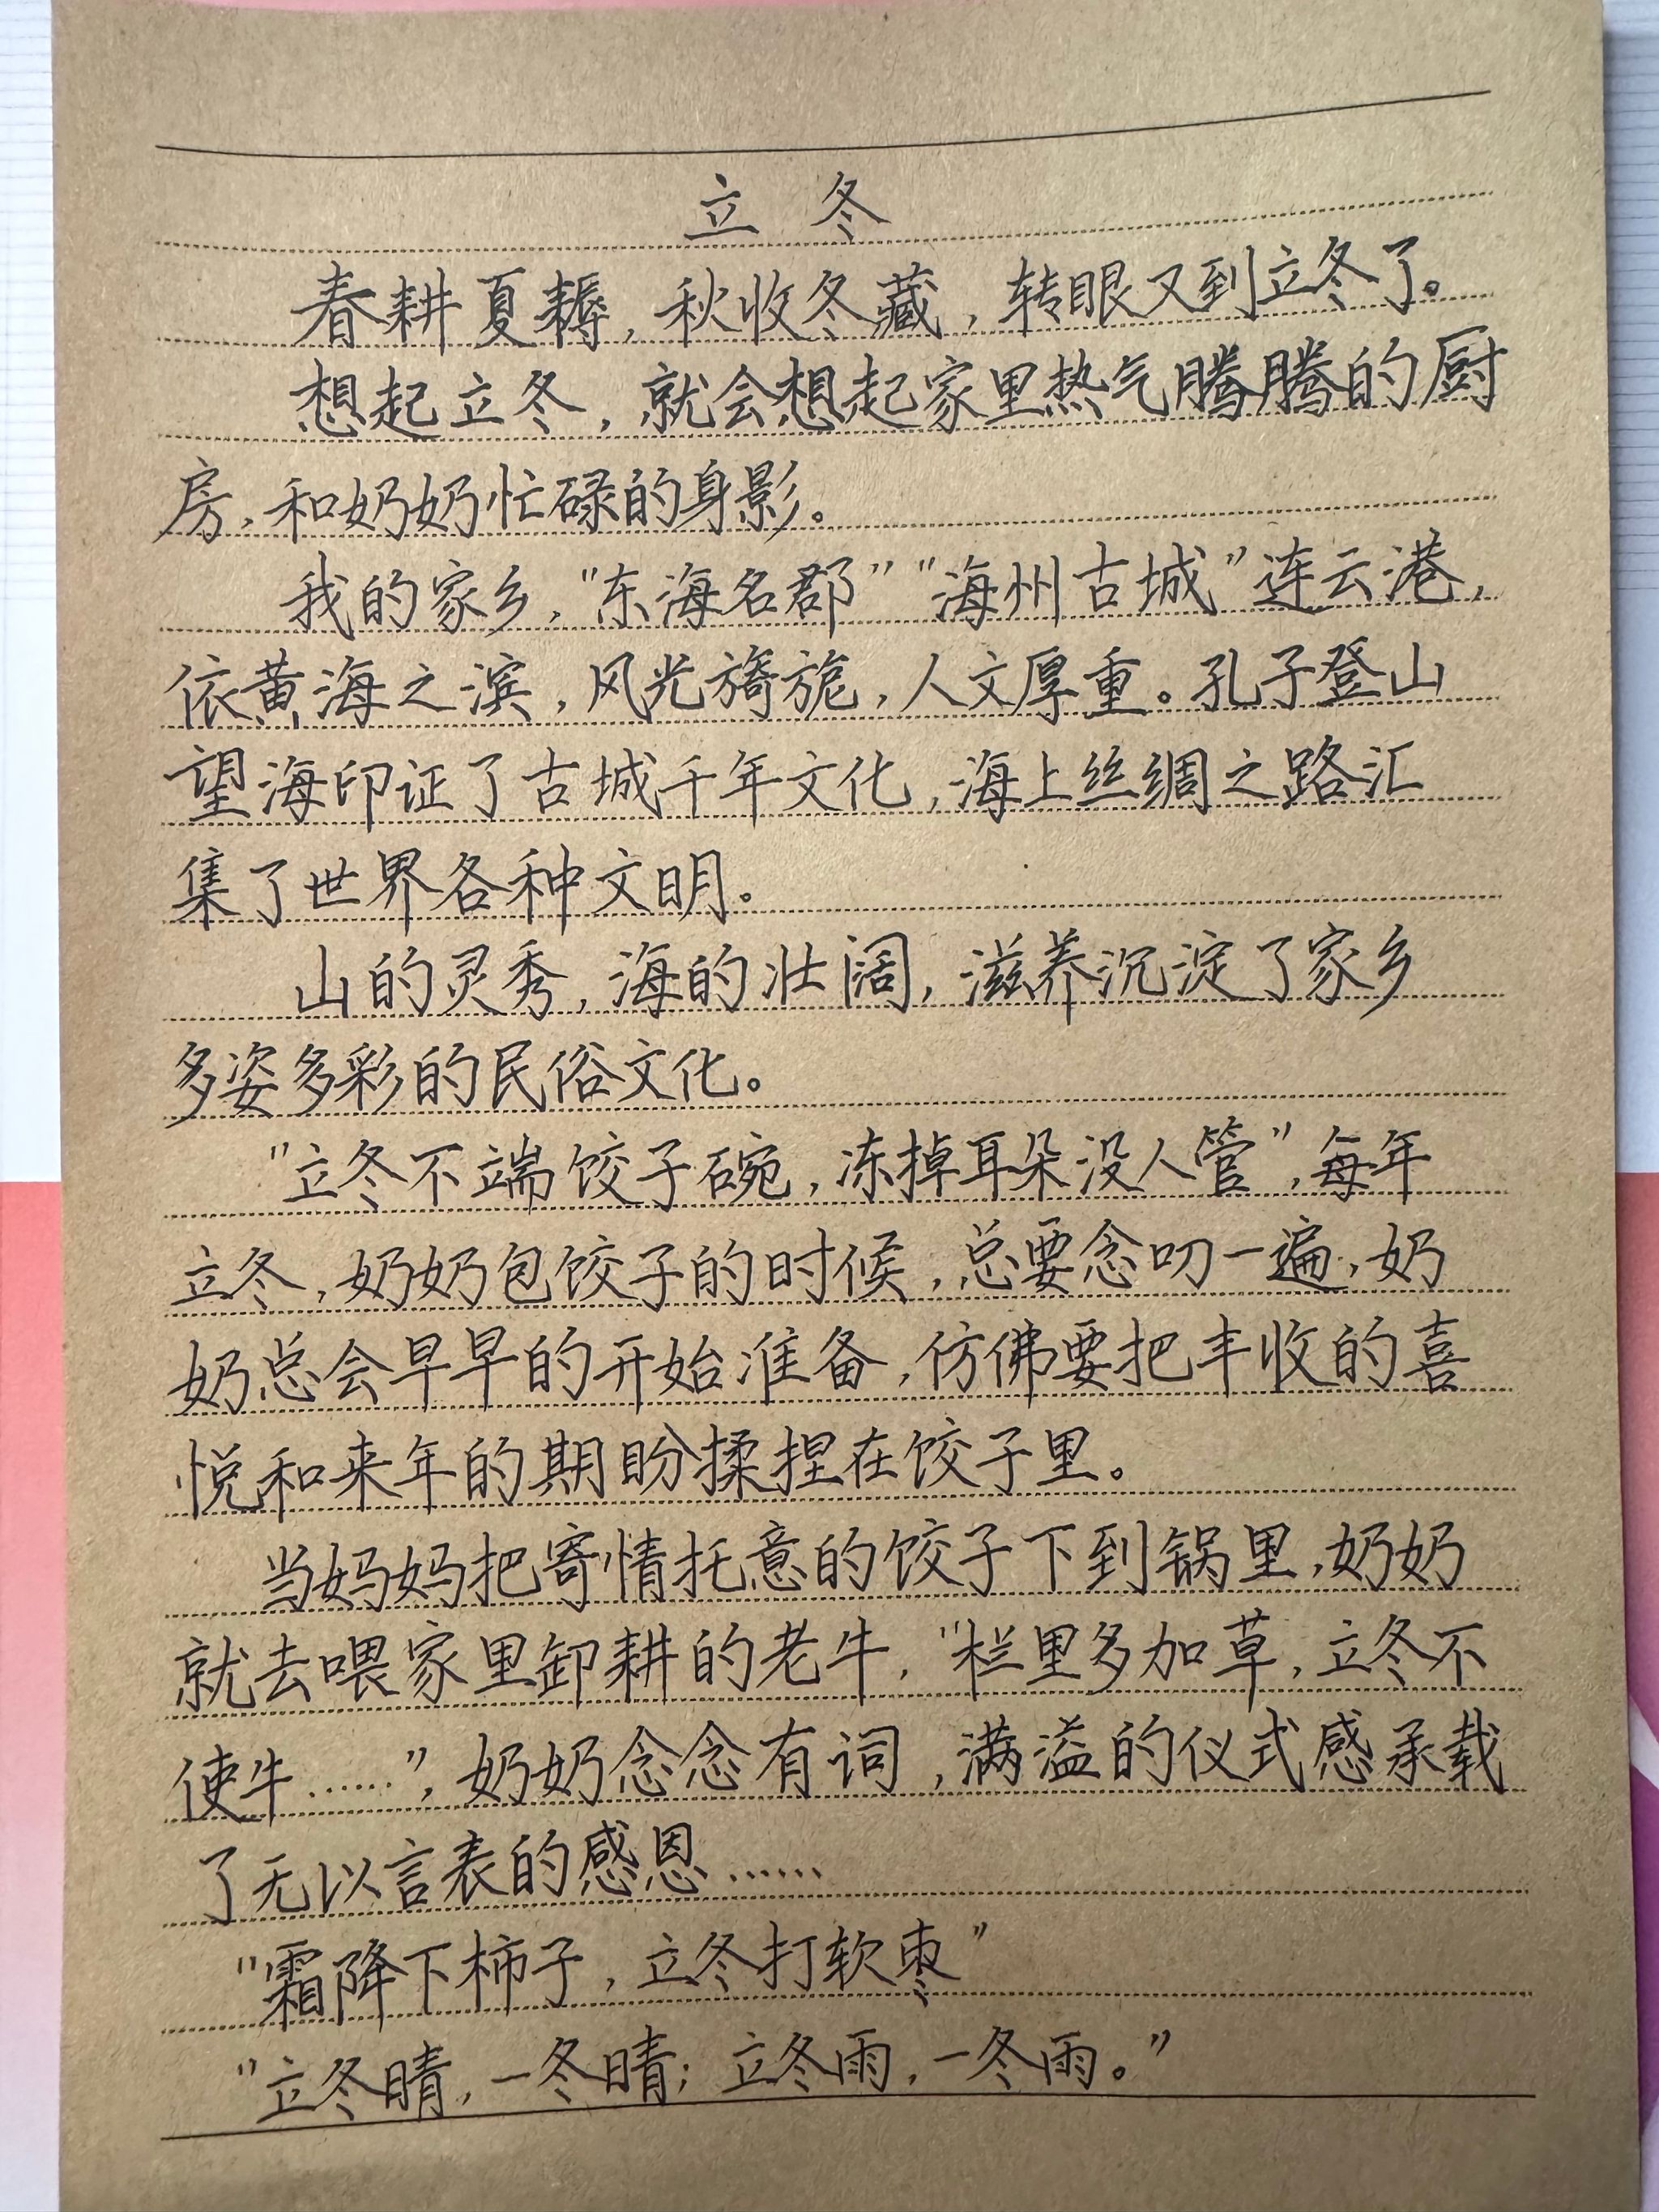 立冬
春耕夏耨，秋收冬藏，转眼又到立冬了。
想起立冬，就会想起家里热气腾腾的厨
房，和奶奶忙碌的身影。
我的家乡，“东海名郡”“海州古城”连云港，
依黄海之滨，风光旖旎，人文厚重。孔子登山
望海印证了古城千年文化，海上丝绸之路汇
集了世界各种文明。
山的灵秀，海的壮阔，滋养沉淀了家乡
多姿多彩的民俗文化。
“立冬不端饺子碗，冻掉耳朵没人管”，每年
立冬，奶奶包饺子的时候，总要念叨一遍，奶
奶总会早早的开始准备，仿佛要把丰收的喜
悦和来年的期盼揉捏在饺子里。
当妈妈把寄情托意的饺子下到锅里，奶奶
就去喂家里卸耕的老牛，“栏里多加草，立冬不
使牛……”，奶奶念念有词，满溢的仪式感承载
了无以言表的感恩……
“霜降下柿子，立冬打软枣”
“立冬晴，一冬晴；立冬雨，一冬雨。”